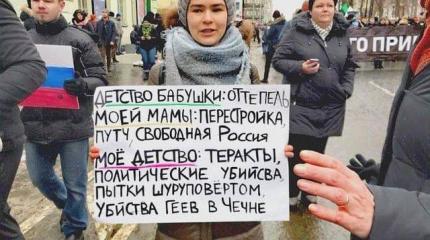 ДЕТСТВО БАБУШКИ: ОТТЕПЕЛЬ
МОЕЙ МАМЫ: ПЕРЕСТРОЙКА,
ПУТЧ, СВОБОДНАЯ РОССИЯ
МОЁ ДЕТСТВО: ТЕРАКТЫ,
ПОЛИТИЧЕСКИЕ УБИЙСВА,
ПЫТКИ ШУРУПОВЁРТОМ,
УБИЙСТВА ГЕЕВ В ЧЕЧНЕ
ГО ПРИ